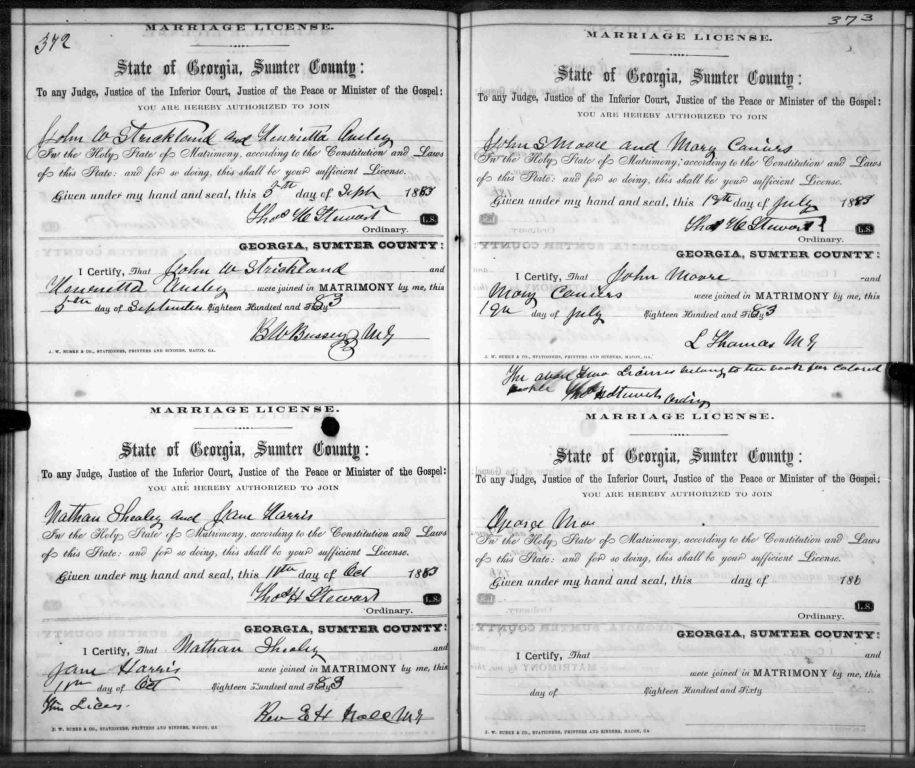 372
MARRIAGE LICENSE.
State of Georgia, Sumter County:
To any Judge, Justice of the Inferior Court, Justice of the Peace or Minister of the Gospel:
YOU ARE HEREBY AUTHORIZED TO JOIN
John W Strickland and Henrietta Ansley
In the Holy State of Matrimony, according to the Constitution and Laws
of this State: and for so doing, this shall be your sufficient License.
Given under my hand and seal, this 5th day of Sept 1883
Thos H Stewart L.S.
Ordinary.
GEORGIA, SUMTER COUNTY:
I Certify, That John W Strickland and
Henrietta Ansley were joined in MATRIMONY by me, this
5th day of September Eighteen Hundred and 83
B W Bussey M G
J. W. BURKE & CO., STATIONERS, PRINTERS AND BINDERS, MACON, GA.
MARRIAGE LICENSE.
State of Georgia, Sumter County:
To any Judge, Justice of the Inferior Court, Justice of the Peace or Minister of the Gospel:
YOU ARE HEREBY AUTHORIZED TO JOIN
Nathan Shealy and Jane Harris
In the Holy State of Matrimony, according to the Constitution and Laws
of this State: and for so doing, this shall be your sufficient License.
Given under my hand and seal, this day of Oct 1883
Thos H Stewart L.S.
Ordinary.
GEORGIA, SUMTER COUNTY:
I Certify, That Nathan Shealy and
Jane Harris were joined in MATRIMONY by me, this
day of Oct Eighteen Hundred and 83
Rev E H Hall M G
J. W. BURKE & CO., STATIONERS, PRINTERS AND BINDERS, MACON, GA
373
MARRIAGE LICENSE.
State of Georgia, Sumter County:
To any Judge, Justice of the Inferior Court, Justice of the Peace or Minister of the Gospel:
YOU ARE HEREBY AUTHORIZED TO JOIN
John S Moore and Mary Caniers
In the Holy State of Matrimony, according to the Constitution and Laws
of this State: and for so doing, this shall be your sufficient License.
Given under my hand and seal, this day of July 1883
Thos H Stewart L.S.
Ordinary.
GEORGIA, SUMTER COUNTY:
I Certify, That John Moore and
Mary Caniers were joined in MATRIMONY by me, this
19th day of July Eighteen Hundred and 83
L Thomas M G
J. W. BURKE & CO., STATIONERS, PRINTERS AND BINDERS, MACON, GA.
The above Licenses belong to the book for colored
people Thos H Stewart Ordinry
MARRIAGE LICENSE.
State of Georgia, Sumter County:
To any Judge, Justice of the Inferior Court, Justice of the Peace or Minister of the Gospel:
YOU ARE HEREBY AUTHORIZED TO JOIN
George
In the Holy State of Matrimony, according to the Constitution and Laws
of this State: and for so doing, this shall be your sufficient License.
Given under my hand and seal, this day of 186
L.S.
Ordinary.
GEORGIA, SUMTER COUNTY:
I Certify, That and
were joined in MATRIMONY by me, this
day of Eighteen Hundred and Sixty
J. W. BURKE & CO., STATIONERS, PRINTERS AND BINDERS, MACON, GA